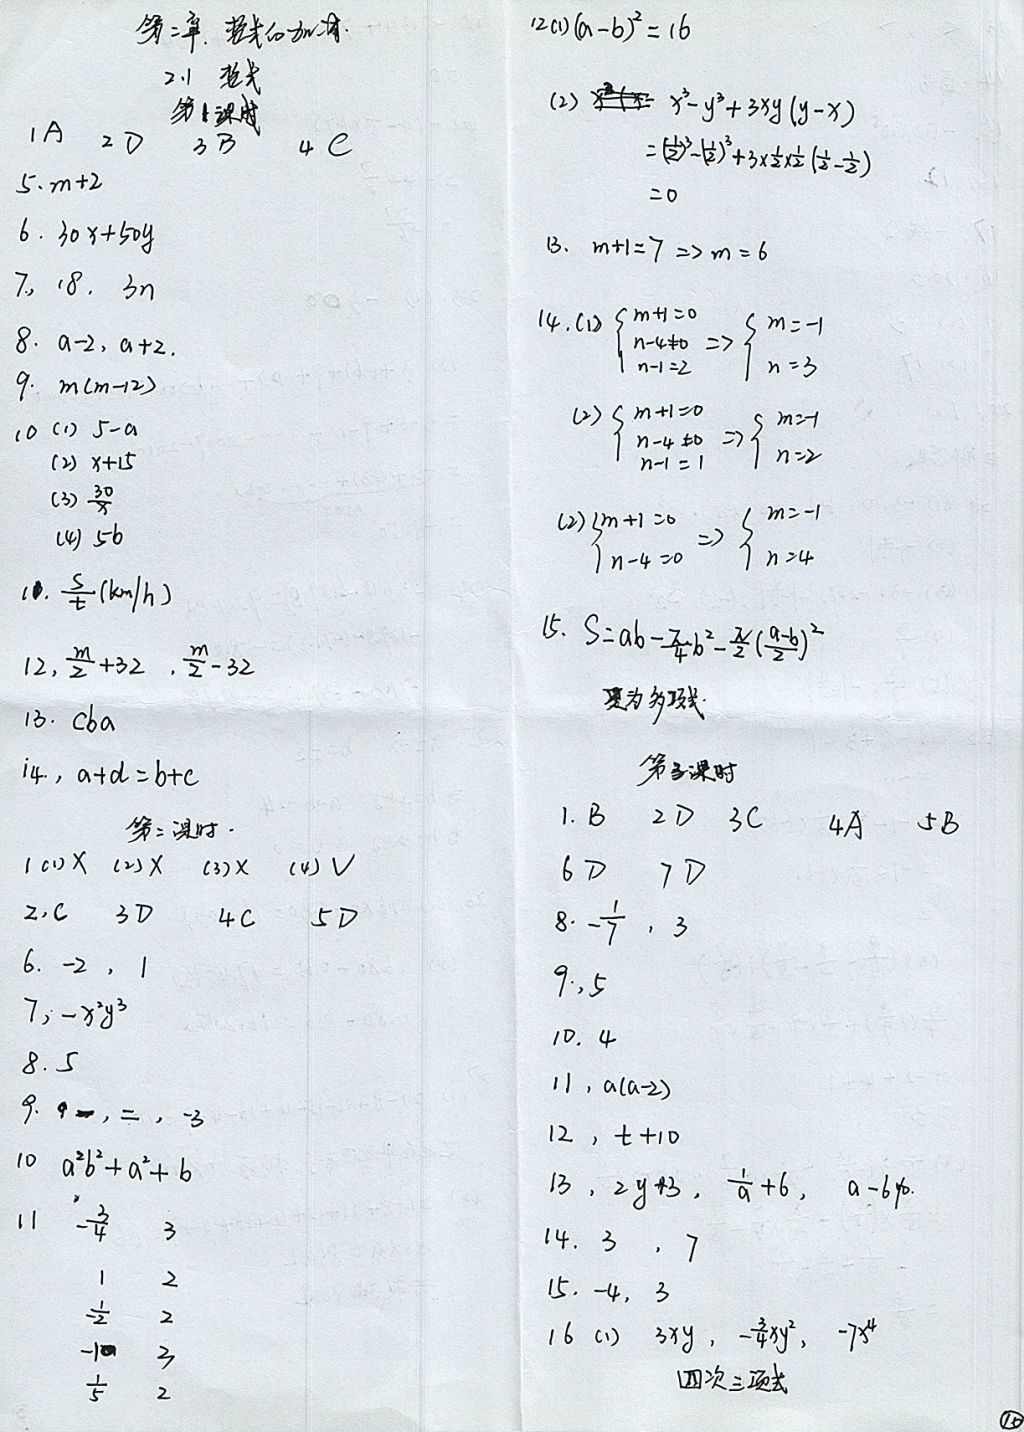 第二章. 整式的加减.
2.1 整式
第1课时
1A 2D 3B 4C
5. m+2
6. 30x+50y
7, 18. 3n
8. a-2, a+2.
9. m(m-12)
10 (1) 5-a
(2) x+15
(3) \frac{30}{x}
(4) 5b
11. \frac{s}{t}(km/h)
12, \frac{m}{2}+32 , \frac{m}{2}-32
13. cba
14., a+d=b+c
第二课时.
1 (1)X (2)X (3)X (4)V
2.C 3D 4C 5D
6. -2 , 1
7, -x²y³
8. 5
9. 二, -3
10 a²b²+a²+b
11 -\frac{3}{4} 3
1 2
\frac{1}{-2} 2
-1 3
\frac{1}{5} 2
12(1)(a-b)²=16
(2) x³-y³+3xy(y-x)
=(\frac{1}{2})³-(\frac{1}{2})³+3×\frac{1}{2}×\frac{1}{2}(\frac{1}{2}-\frac{1}{2})
=0
13. m+1=7 => m=6
14.(1) { m+1=0 n-4≠0 n-1=2 => { m=-1 n=3
(2) { m+1=0 n-4≠0 n-1=1 => { m=-1 n=2
(2) { m+1=0 n-4=0 => { m=-1 n=4
15. S=ab-\frac{π}{4}b²-\frac{π}{2}(\frac{a-b}{2})²
为多项式.
第3课时
1. B 2D 3C 4A 5B
6D 7D
8. -\frac{1}{7} , 3
9., 5
10. 4
11, a(a-2)
12 , t+10
13 , 2y+3 , \frac{1}{a}+6 , a-6%.
14. 3 , 7
15. -4, 3
16 (1) 3xy , -\frac{3}{4}xy², -7x⁴
四次三项式
15